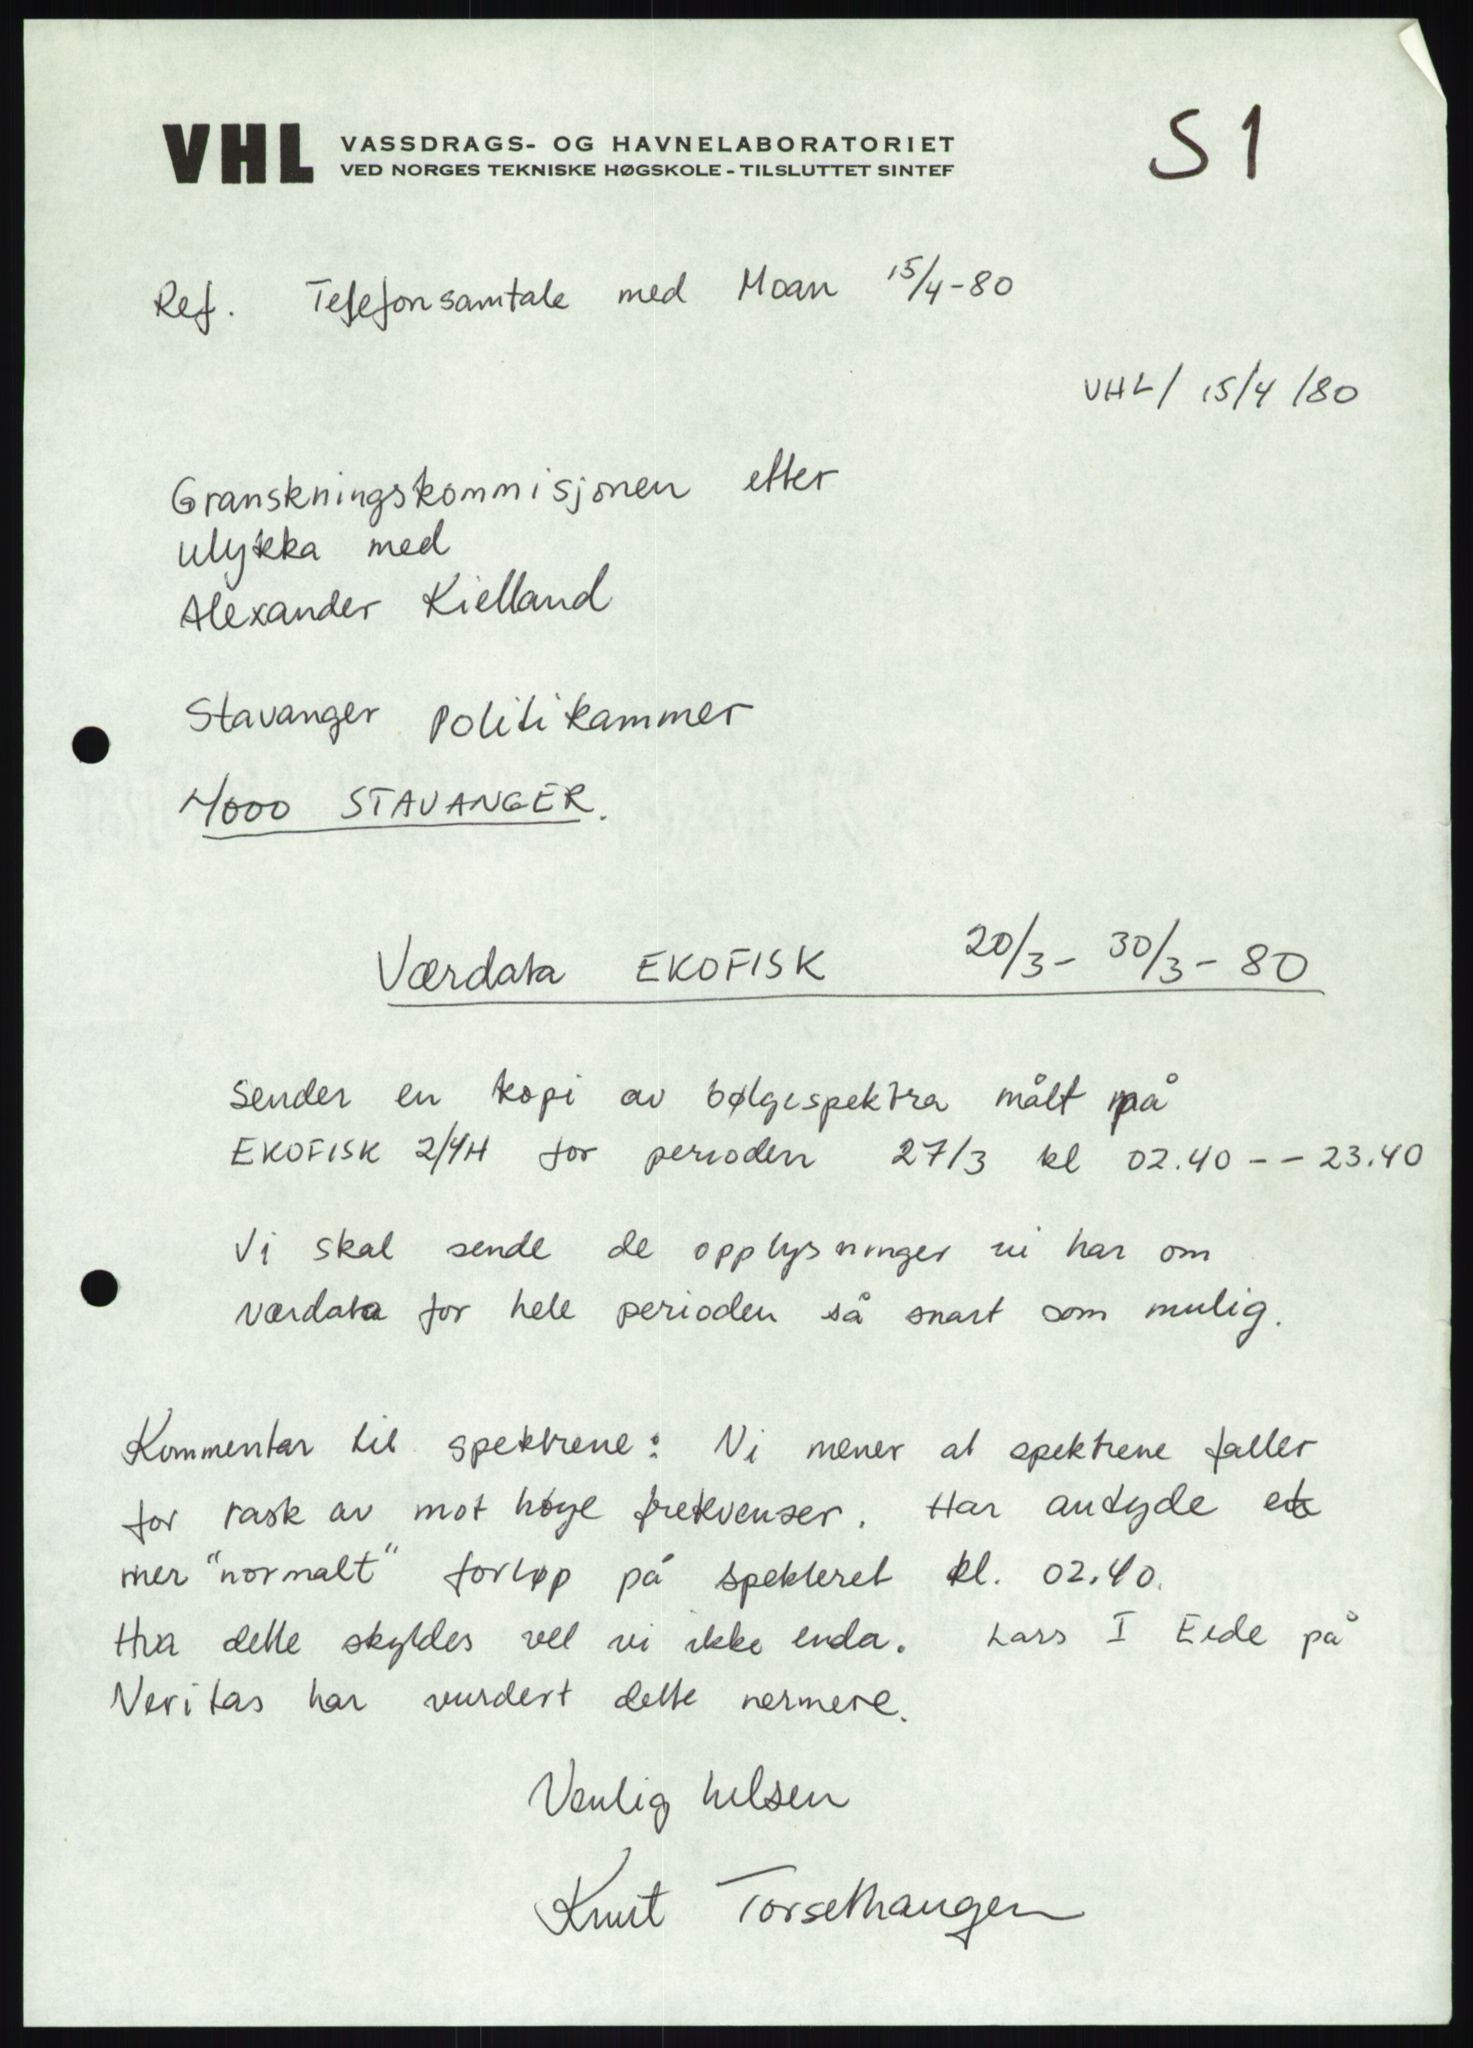 VHL VASSDRAGS- OG HAVNELABORATORIET
VED NORGES TEKNISKE HØGSKOLE - TILSLUTTET SINTEF
S1
Ref. Telefonsamtale med Moan 15/4-80
VHL/ 15/4 /80
Granskningskommisjonen etter
ulykka med
Alexander Kielland
Stavanger politikammer
4000 STAVANGER.
Værdata EKOFISK 20/3- 30/3- 80
Sender en kopi av bølgespektra målt på
EKOFISK 2/4H for perioden 27/3 kl 02.40 -- 23.40
Vi skal sende de opplysninger vi har om
værdata for hele perioden så snart som mulig.
Kommentar til spektrene: Vi mener at spektrene faller
for rask av mot høye frekvenser. Har antyde et
mer "normalt" forløp på spekteret kl. 02.40.
Hva dette skyldes vet vi ikke enda. Lars I Eide på
Veritas har vurdert dette nermere.
Venlig helsen
Knut Torsethaugen